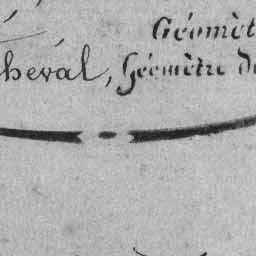 Géomèt
cheval, Géomètre d